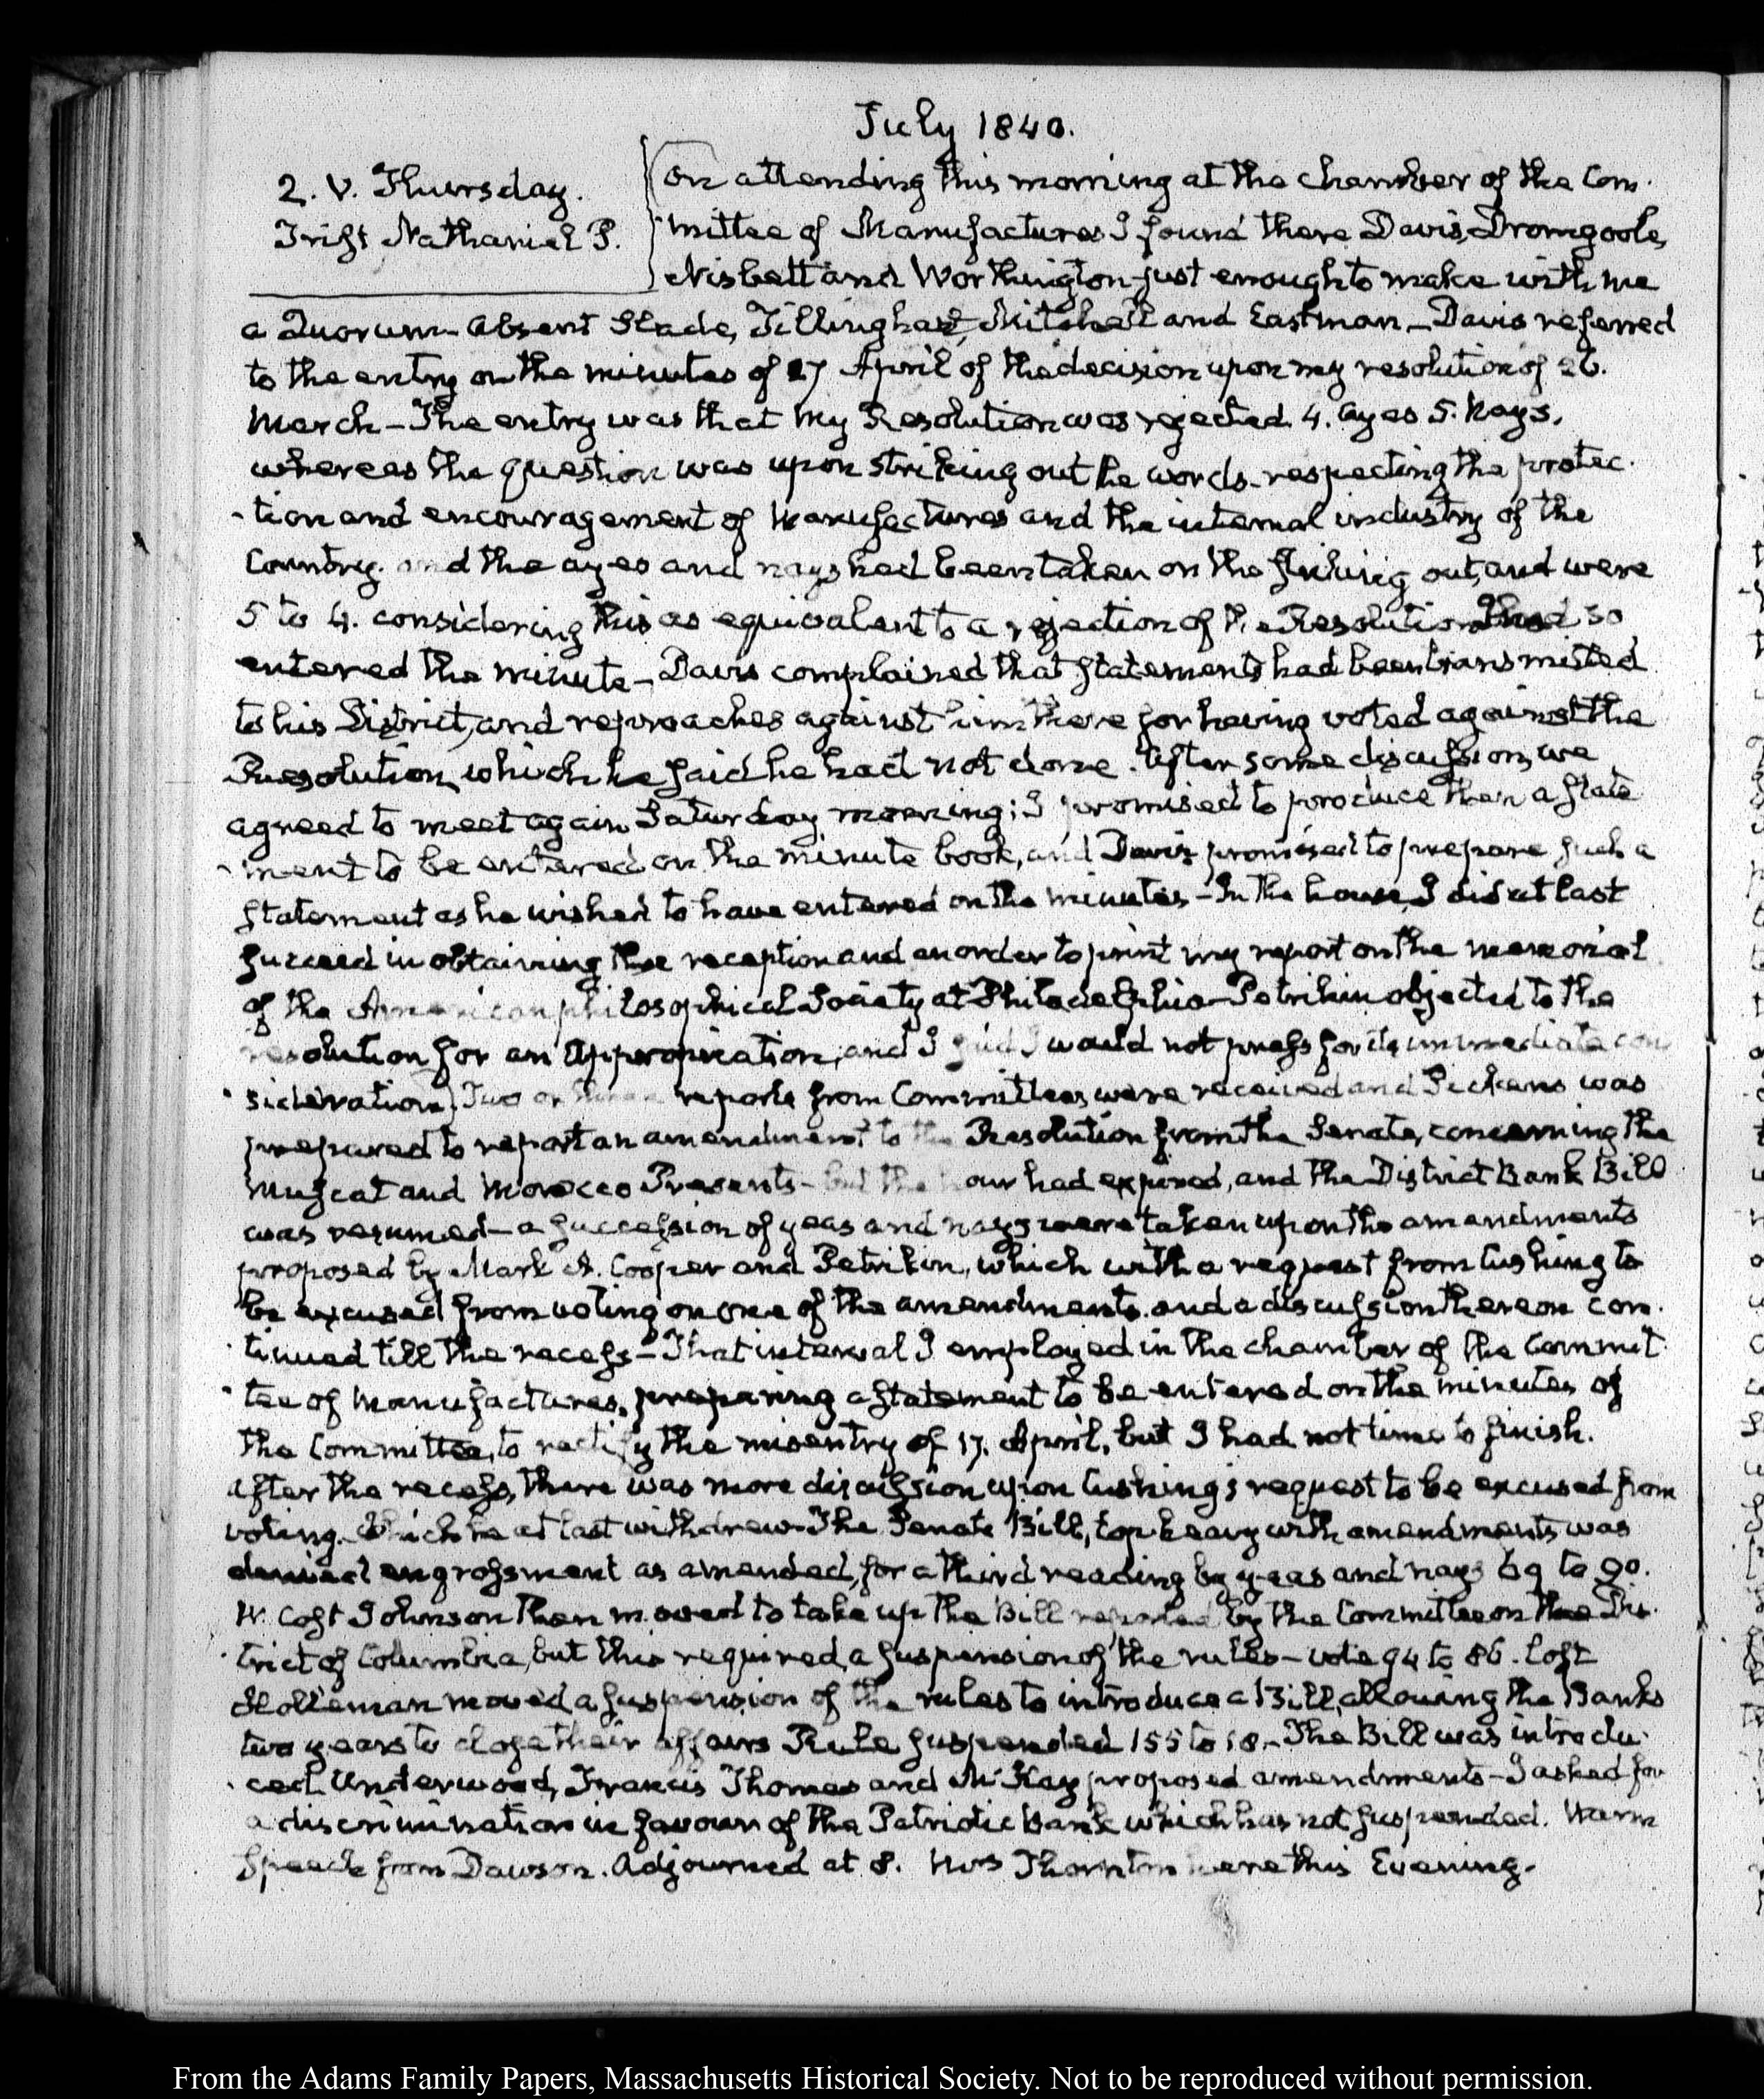 July 1840.
2. V. Thursday.
Trist Nathaniel P.
On attending this morning at the chamber of the Com-
mittee of Manufactures I found there Davis, Dromgoole,
Nisbett and Worthington just enough to make with me
a Quorum- Absent Slade, Tillinghast, Mitchell and Eastman_ Davis referred
to the entry on the minutes of 27 April of the decision upon my resolution of 26.
March_ The entry was that my Resolution was rejected 4. ayes 5. Nays.
whereas the question was upon striking out the words- respecting the protec-
-tion and encouragement of Manufactures and the internal industry of the
Country. and the ayes and nays had been taken on the striking out, and were
5 to 4. considering this as equivalent to a rejection of the Resolution had so
entered the minute_ Davis complained that statements had been transmitted
to his District, and reproaches against him there for having voted against the
Resolution, which he said he had not done. After some discussion, we
agreed to meet again Saturday morning; I promised to produce then a state
-ment to be entered on the minute book, and Davis promised to prepare such a
statement as he wished to have entered on the minutes_ In the house, I did at last
succeed in obtaining the reception and an order to print my report on the memorial
of the American philosophical Society at Philadelphia_ Petrikin objected to the
resolution for an Appropriation, and I said I would not press for its immediate con
-sideration. Two or three reports from Committees were received and Pickens was
prepared to report an amendment to the Resolution from the Senate, concerning the
Muscat and Morocco Presents- but the hour had expired, and the District Bank Bill
was resumed_ a succession of yeas and nays were taken upon the amendments
proposed by Mark A. Cooper and Petrikin, which with a request from Cushing to
be excused from voting on one of the amendments. and a discussion thereon con-
-tinued till the recess_ That interval I employed in the chamber of the Commit
-tee of Manufactures, preparing a statement to be entered on the minutes of
the Committee, to rectify the misentry of 17. April, but I had not time to finish.
After the recess, there was more discussion upon Cushing's request to be excused from
voting. Which he at last withdrew_ The Senate Bill, top heavy with amendments was
denied engrossment as amended, for a third reading by yeas and nays 69 to 90.
W. Cost Johnson then moved to take up the Bill reported by the Committee on the Dis-
-trict of Columbia, but this required a suspension of the rules_ vote 94 to 86. lost
Holleman moved a suspension of the rules to introduce a Bill, allowing the Banks
two years to close their affairs Rule suspended 155 to 18._ The Bill was introdu-
-ced. Underwood, Francis Thomas and McKay proposed amendments_ I asked for
a discrimination in favour of the Patriotic Bank which has not suspended. Warm
Speech from Dawson. Adjourned at 8. Mrs Thornton here this Evening.
From the Adams Family Papers, Massachusetts Historical Society. Not to be reproduced without permission.